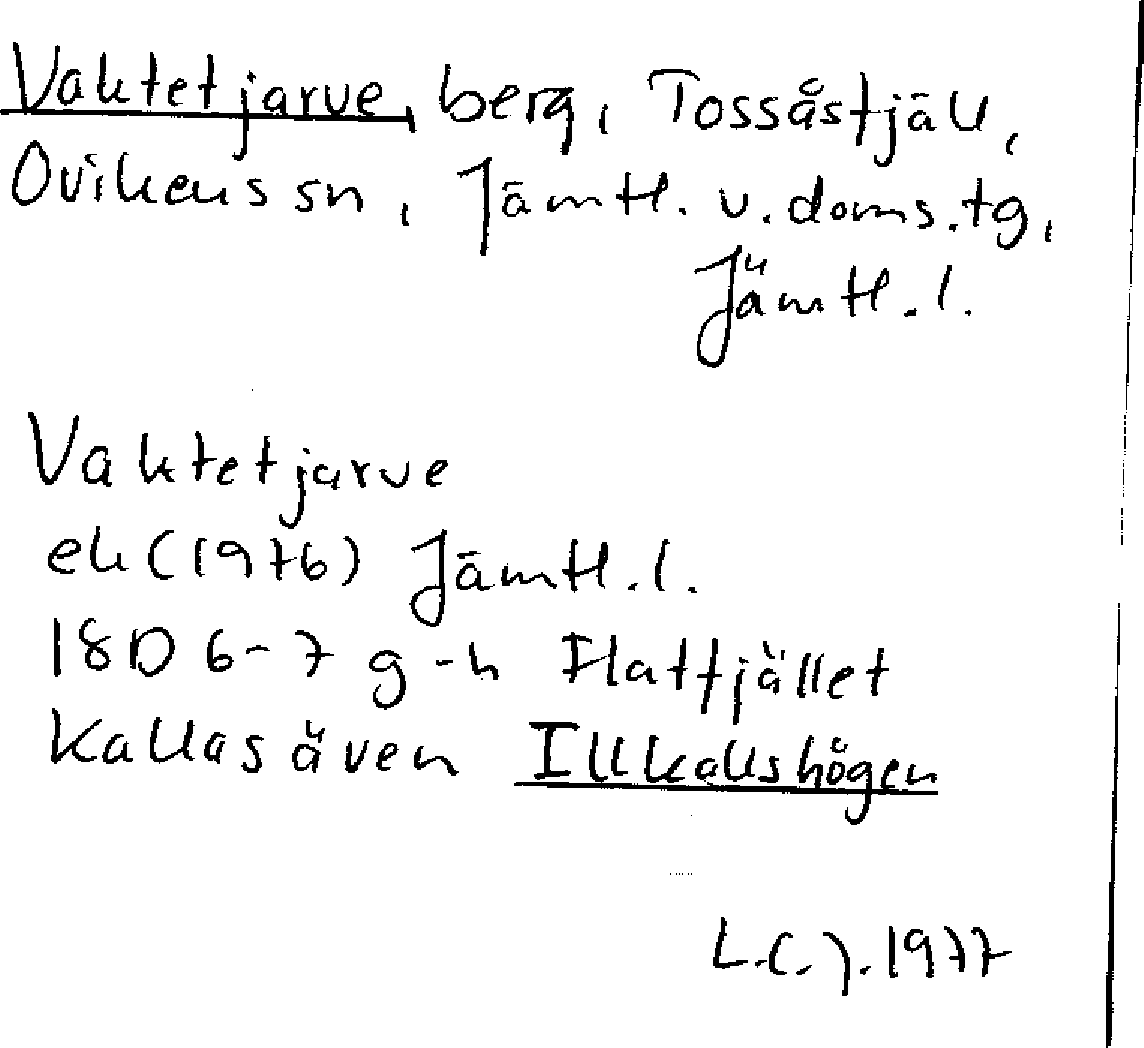 Vaktetjarve, berg, Tossåsfjäll,
Ovikens sn, Jämtl. v. doms.tg,
Jämtl.l.
Vaktetjarve
ek (1976) Jämtl.l.
18D 6-7 g-h Flatfjället
Kallas även Illkallshögen
L.C.J. 1977